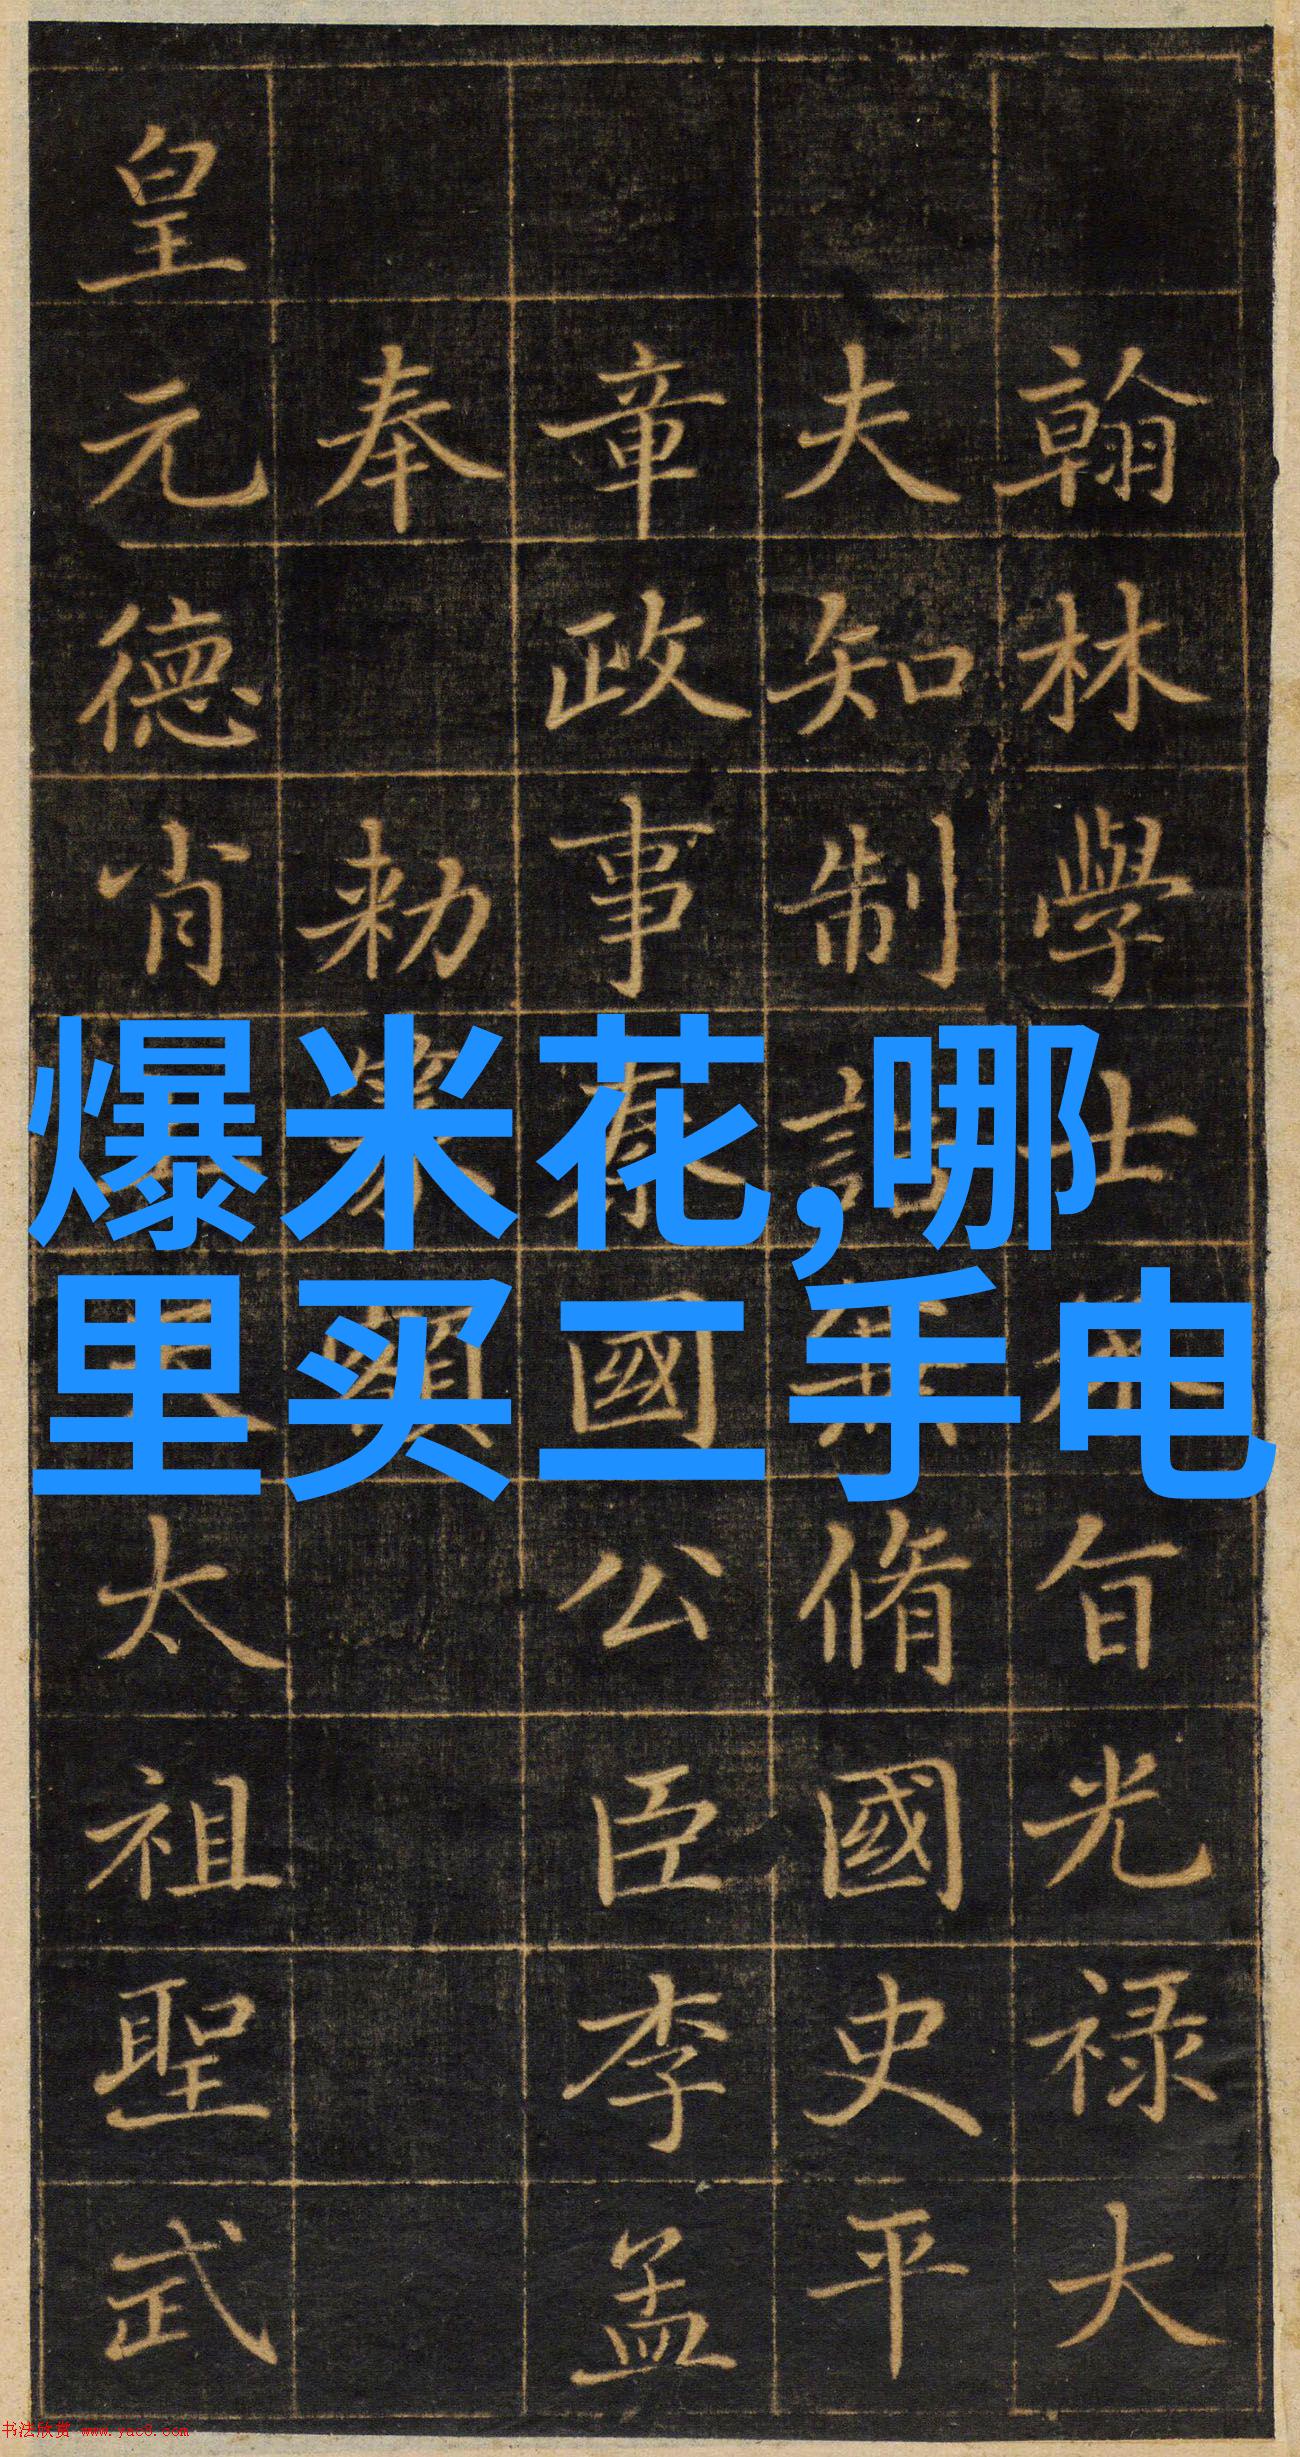 爆米花,哪
里买二手电
翰林學士旨光禄大
夫知制誥脩國史平
章政事國公臣李孟
奉勅額
皇元德肖太祖聖武
书法欣赏 www.yac8.com